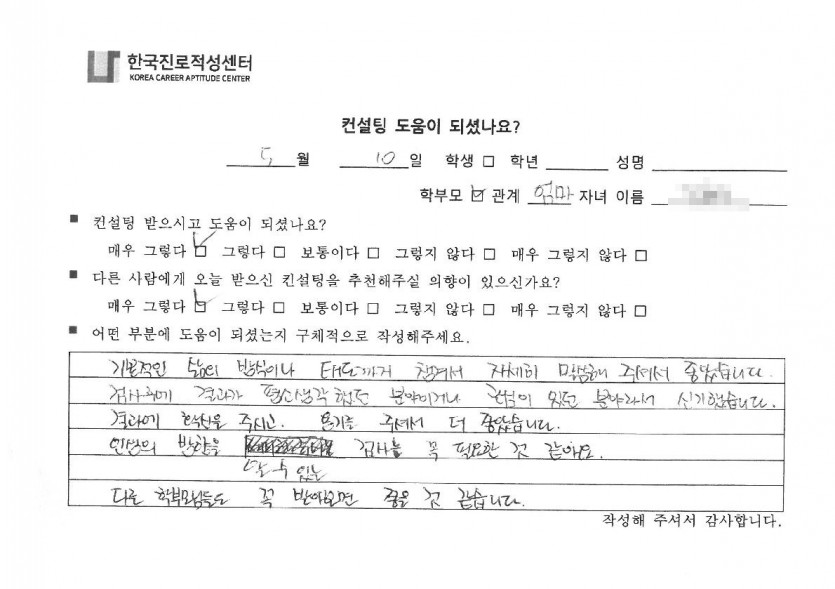 한국진로적성센터
KOREA CAREER APTITUDE CENTER
컨설팅 도움이 되셨나요?
5 월 10 일 학생 □ 학년 성명
학부모 ☑ 관계 엄마 자녀 이름
■ 컨설팅 받으시고 도움이 되셨나요?
매우 그렇다 ☑ 그렇다 □ 보통이다 □ 그렇지 않다 □ 매우 그렇지 않다 □
■ 다른 사람에게 오늘 받으신 컨설팅을 추천해주실 의향이 있으신가요?
매우 그렇다 ☑ 그렇다 □ 보통이다 □ 그렇지 않다 □ 매우 그렇지 않다 □
■ 어떤 부분에 도움이 되셨는지 구체적으로 작성해주세요.
기본적인 삶의 방식이나 태도까지 챙겨서 자세히 말씀해 주셔서 좋았습니다.
결과가 평소생각했던 분야이거나 관심이 있던 분야라서 신기했습니다.
결과에 확신을 주시고. 용기를 주셔서 더 좋았습니다.
방향을 검사를 꼭 필요한 것 같아요.
알 수 있는
다른 학부모님들도 꼭 받아보면 좋을 것 같습니다.
작성해 주셔서 감사합니다.